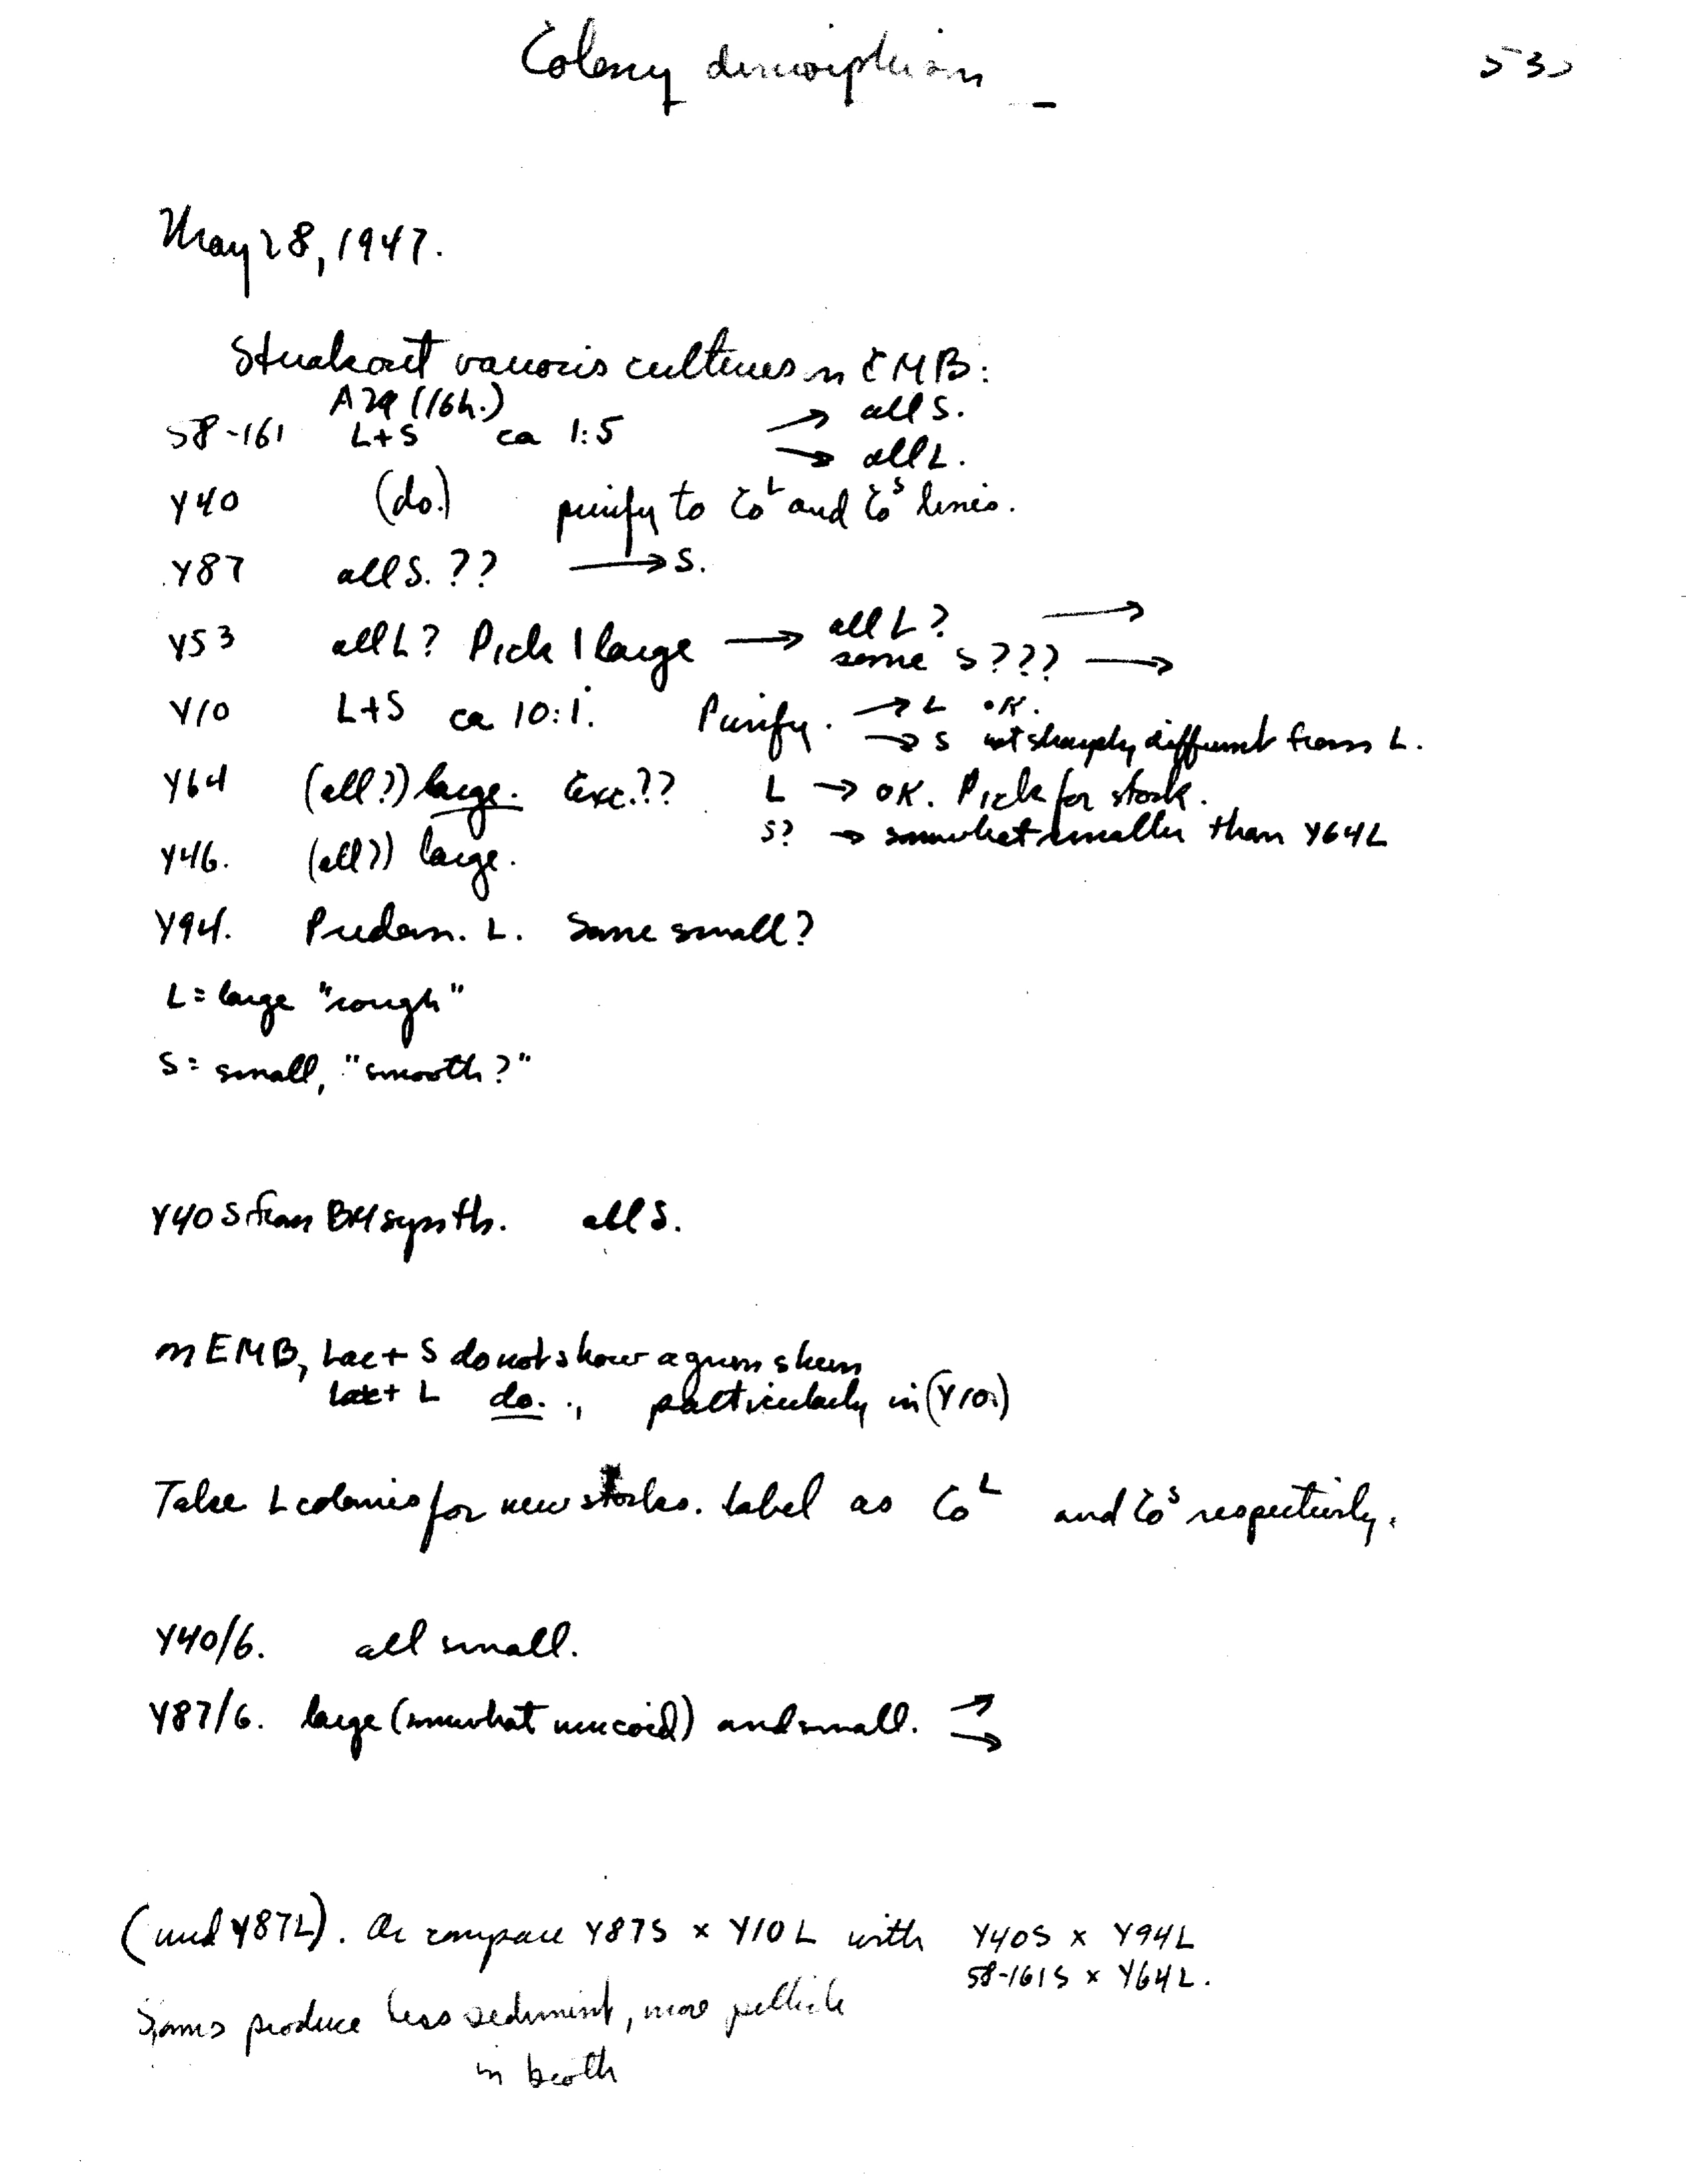 Colony description 
May 28, 1947.
Streak out various cultures on EMB:
A29 (16h.)
58-161 L+S ca 1:5 → all S.
→ all L.
Y40 (do.) purify to Co^L and Co^S lines.
Y87 all S. ?? → S.
Y53 all L? Pick 1 large → all L? →
some S??? →
Y10 L+S ca 10:1. Purify. → L OK.
→ S not sharply different from L.
Y64 (all?) large. Exc.?? L → OK. Pick for stock.
S? → somewhat smaller than Y64L
Y46. (all?) large.
Y94. Predom. L. Some small?
L = large "rough"
S = small, "smooth?"
Y40 S from BM synth. all S.
on EMB, Lac+ S do not show a green sheen
Lac+ L do., particularly in (Y10.)
Take L colonies for new stocks. Label as Co^L and Co^S respectively.
Y40/6. all small.
Y87/6. large (somewhat mucoid) and small. →
→
(and Y87L). Or compare Y87S x Y10L with Y40S x Y94L
58-161S x Y64L.
produce less sediment, more pellicle
in broth